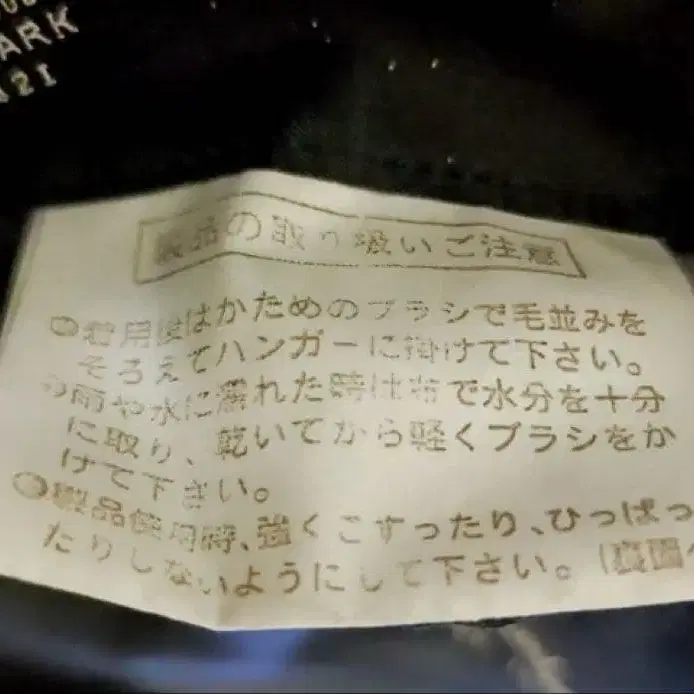 ARK
製品の取り扱いご注意
着用後はかためのブラシで毛並みを
そろえてハンガーに掛けて下さい。
雨や水に濡れた時は布で水分を十分
に取り、乾いてから軽くブラシをか
けて下さい。
製品使用時、強くこすったり、ひっぱっ
たりしないようにして下さい。(裏面へ